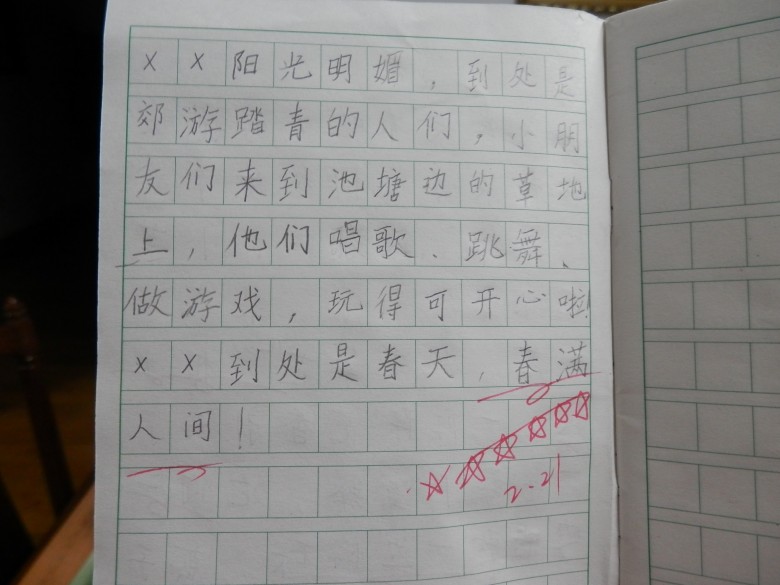 ××阳光明媚，到处是
郊游踏青的人们，小朋
友们来到池塘边的草地
上，他们唱歌、跳舞、
做游戏，玩得可开心啦！
××到处是春天，春满
人间！
2.21